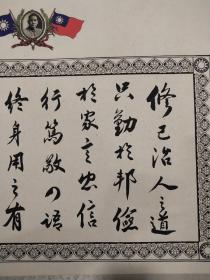 修己治人之道
只勤於邦儉
於家言忠信
行篤敬四語
終身用之有